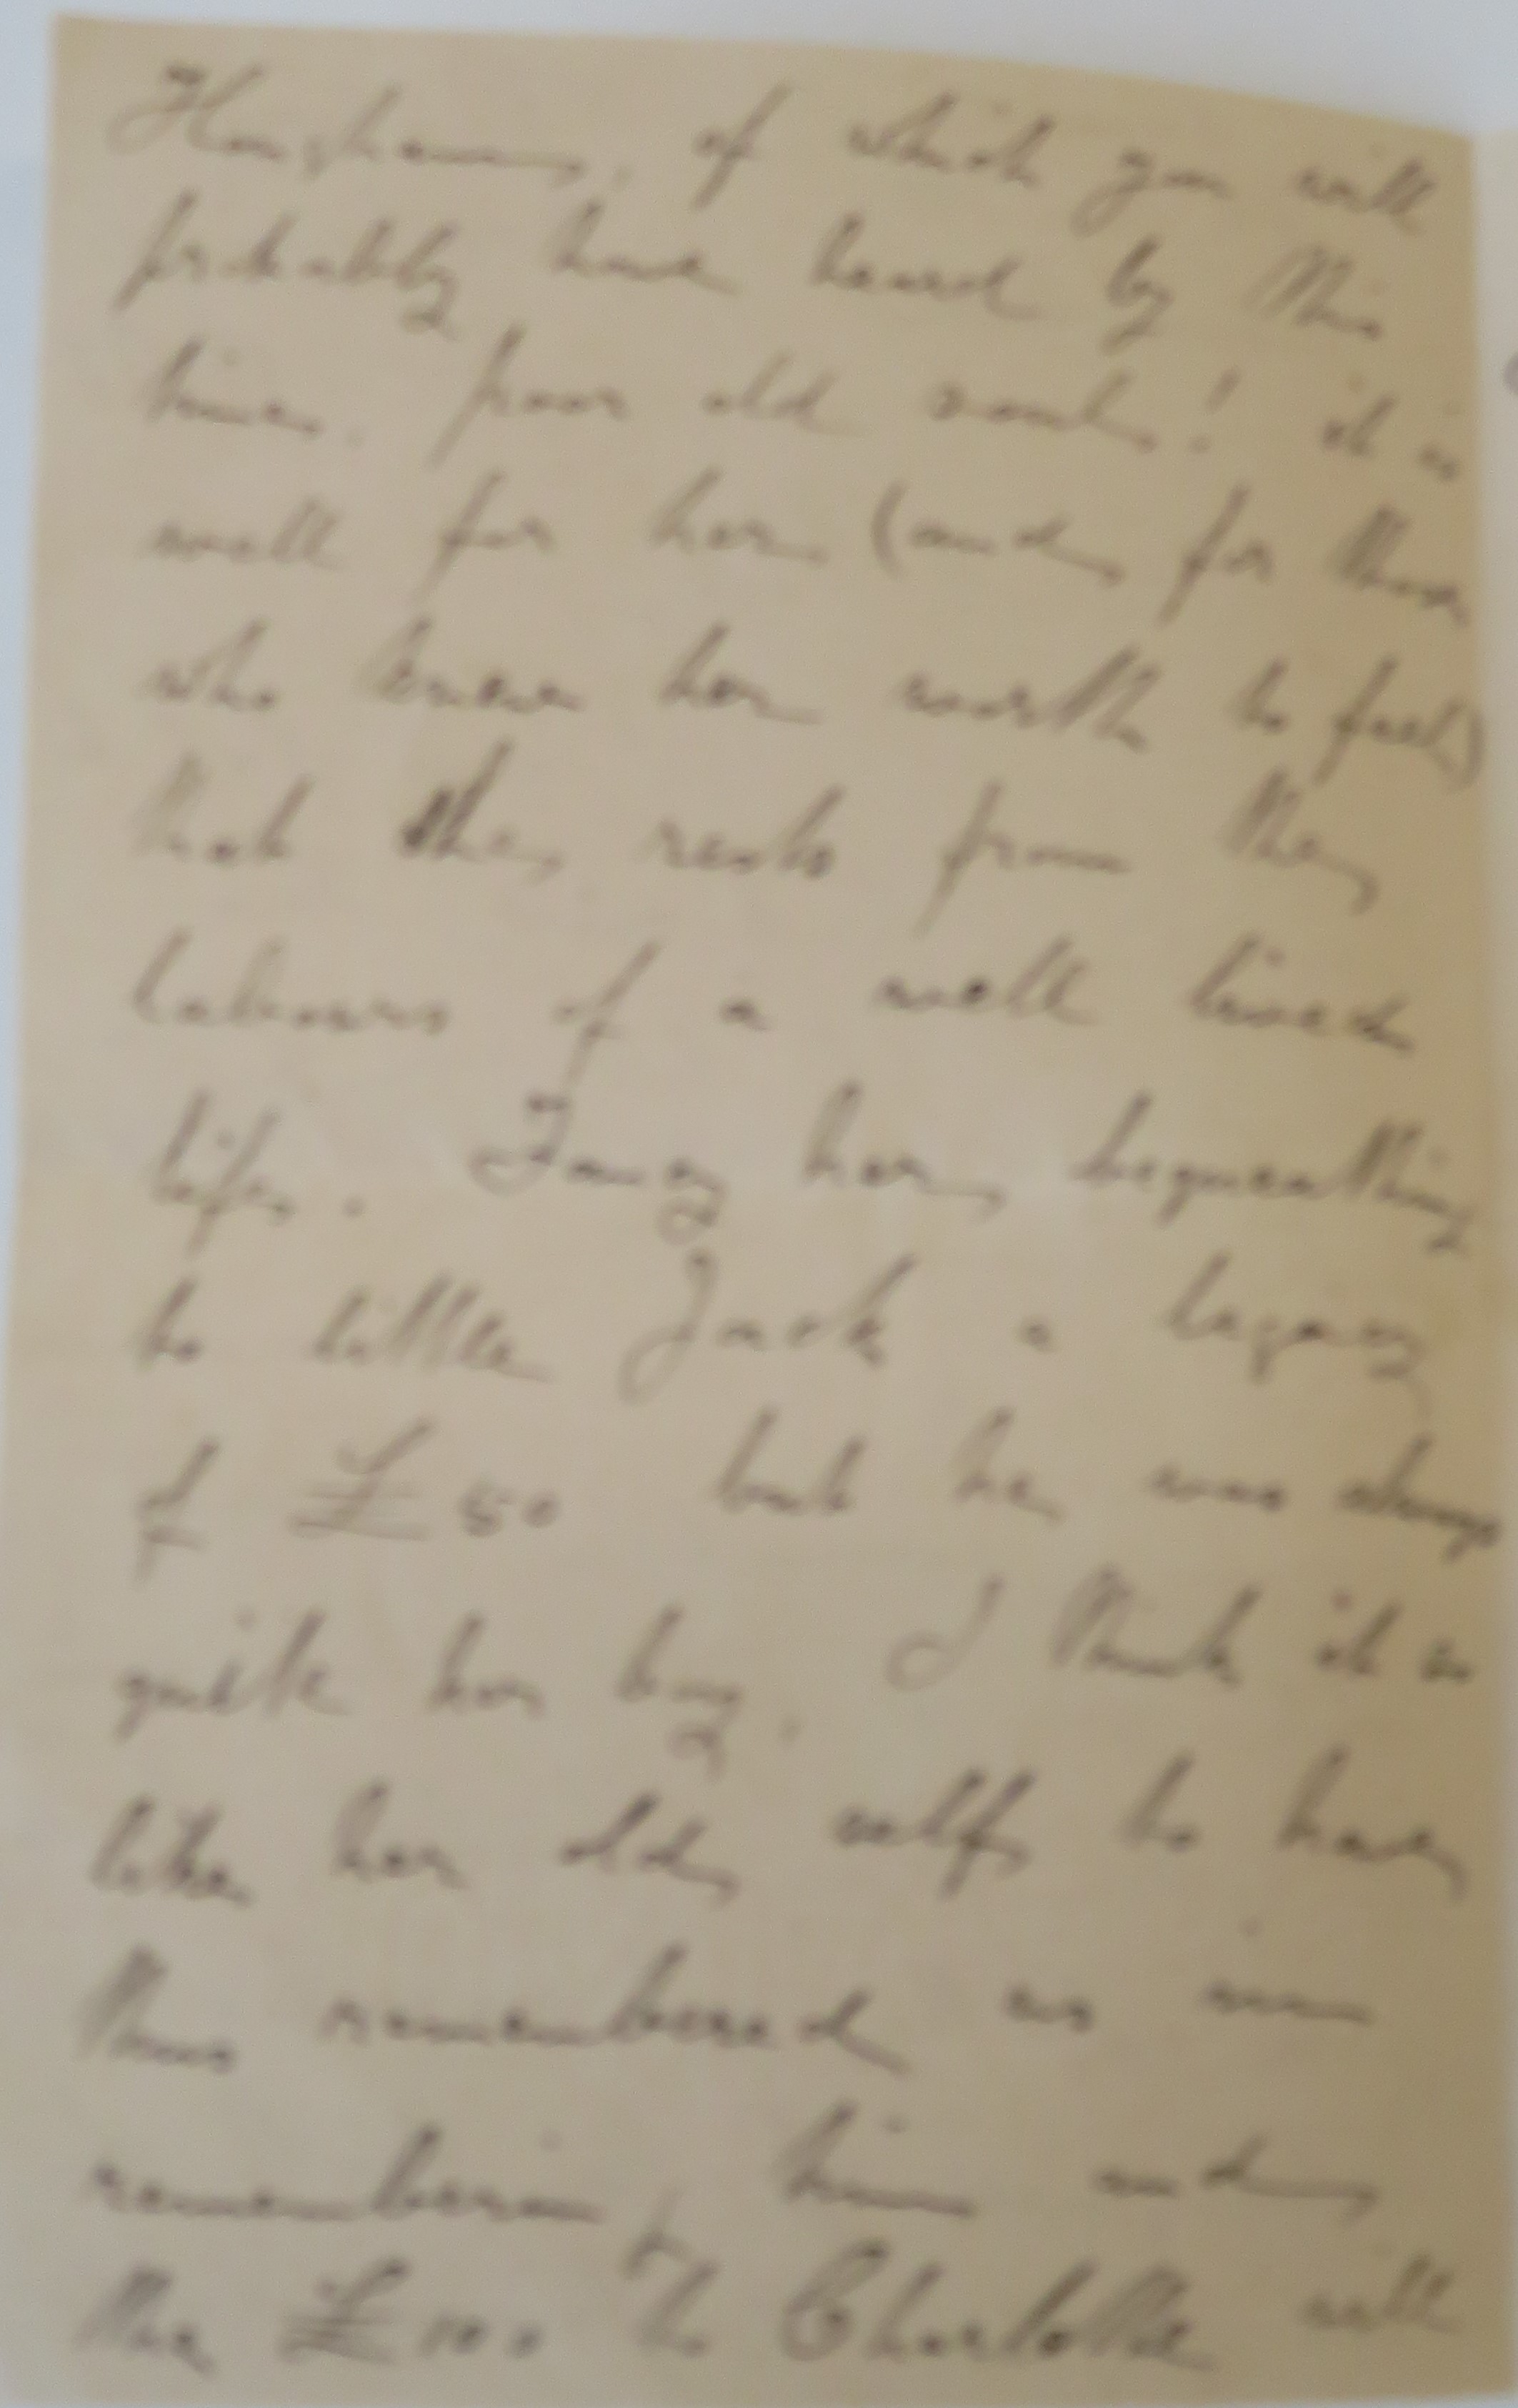 of which you will
probably have heard by this
time. poor old soul! it is
well for her (and for those
who knew her worth to feel)
that she rests from the
labours of a well lived
life. Fancy her bequeathing
to little Jack a legacy
of £50 but he was always
quite her boy. I think it so
like her old self to have
thus remembered us in
remembering him and
the £100 to Charlotte will